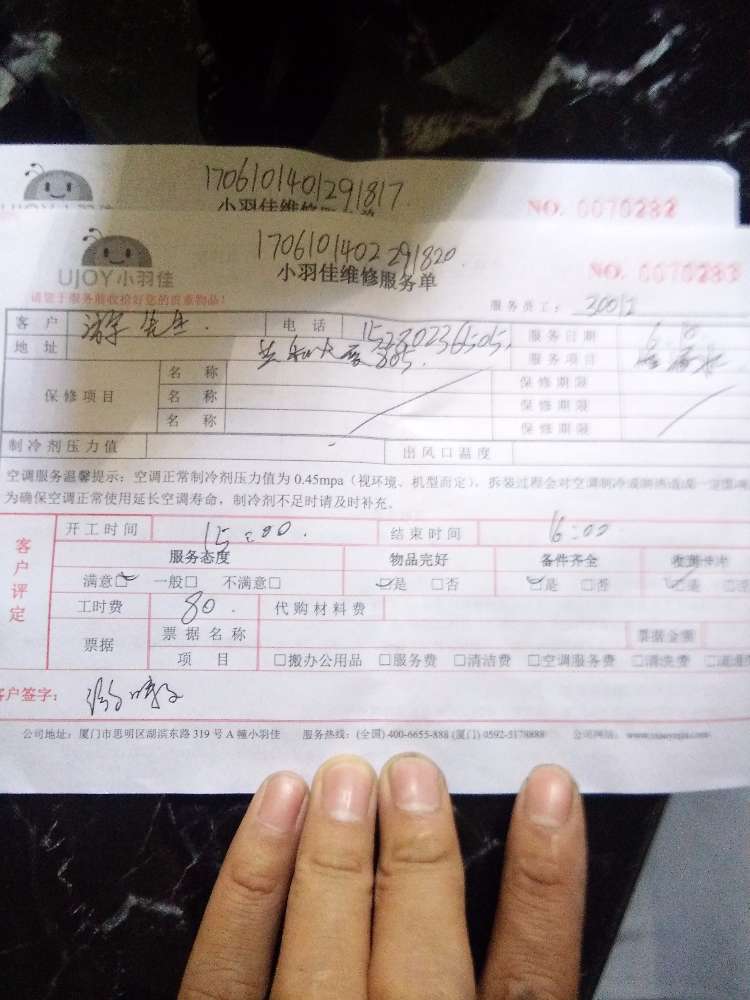 1706101401291817
NO. 0070282
1706101402291820
UJOY小羽佳
小羽佳维修服务单
NO. 0070283
服务员工：30012
客户 先生 电话 服务日期
地址 805 服务项目
保修项目 名称 保修期限
名称 保修期限
名称 保修期限
制冷剂压力值 出风口温度
空调服务温馨提示：空调正常制冷剂压力值为 0.45mpa（视环境、机型而定），拆装过程会对空调制冷
为确保空调正常使用延长空调寿命，制冷剂不足时请及时补充。
客户评定
开工时间 15:00 结束时间 16:00
服务态度 物品完好 备件齐全
满意□ 一般□ 不满意□ □是 □否 □是 □否 □是 □否
工时费 80 代购材料费
票据 票据名称 票据金额
项目 □搬办公用品 □服务费 □清洁费 □空调服务费 □清洗费
客户签字：
公司地址：厦门市思明区湖滨东路 319 号 A 幢小羽佳 服务热线：(全国) 400-6655-888 (厦门) 0592-5178888 公司网站：